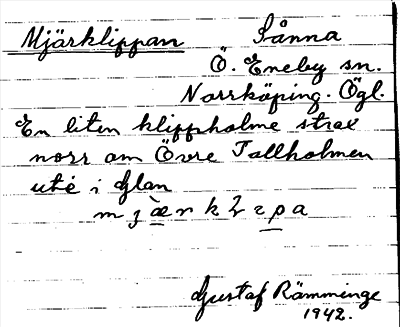 Mjärklippan Lånna
Ö. Eneby sn.
Norrköping. Ögl.
En liten klippholme strax
norr om Övre Tallholmen
ute i Glan
Gustaf Rämminge
1942.